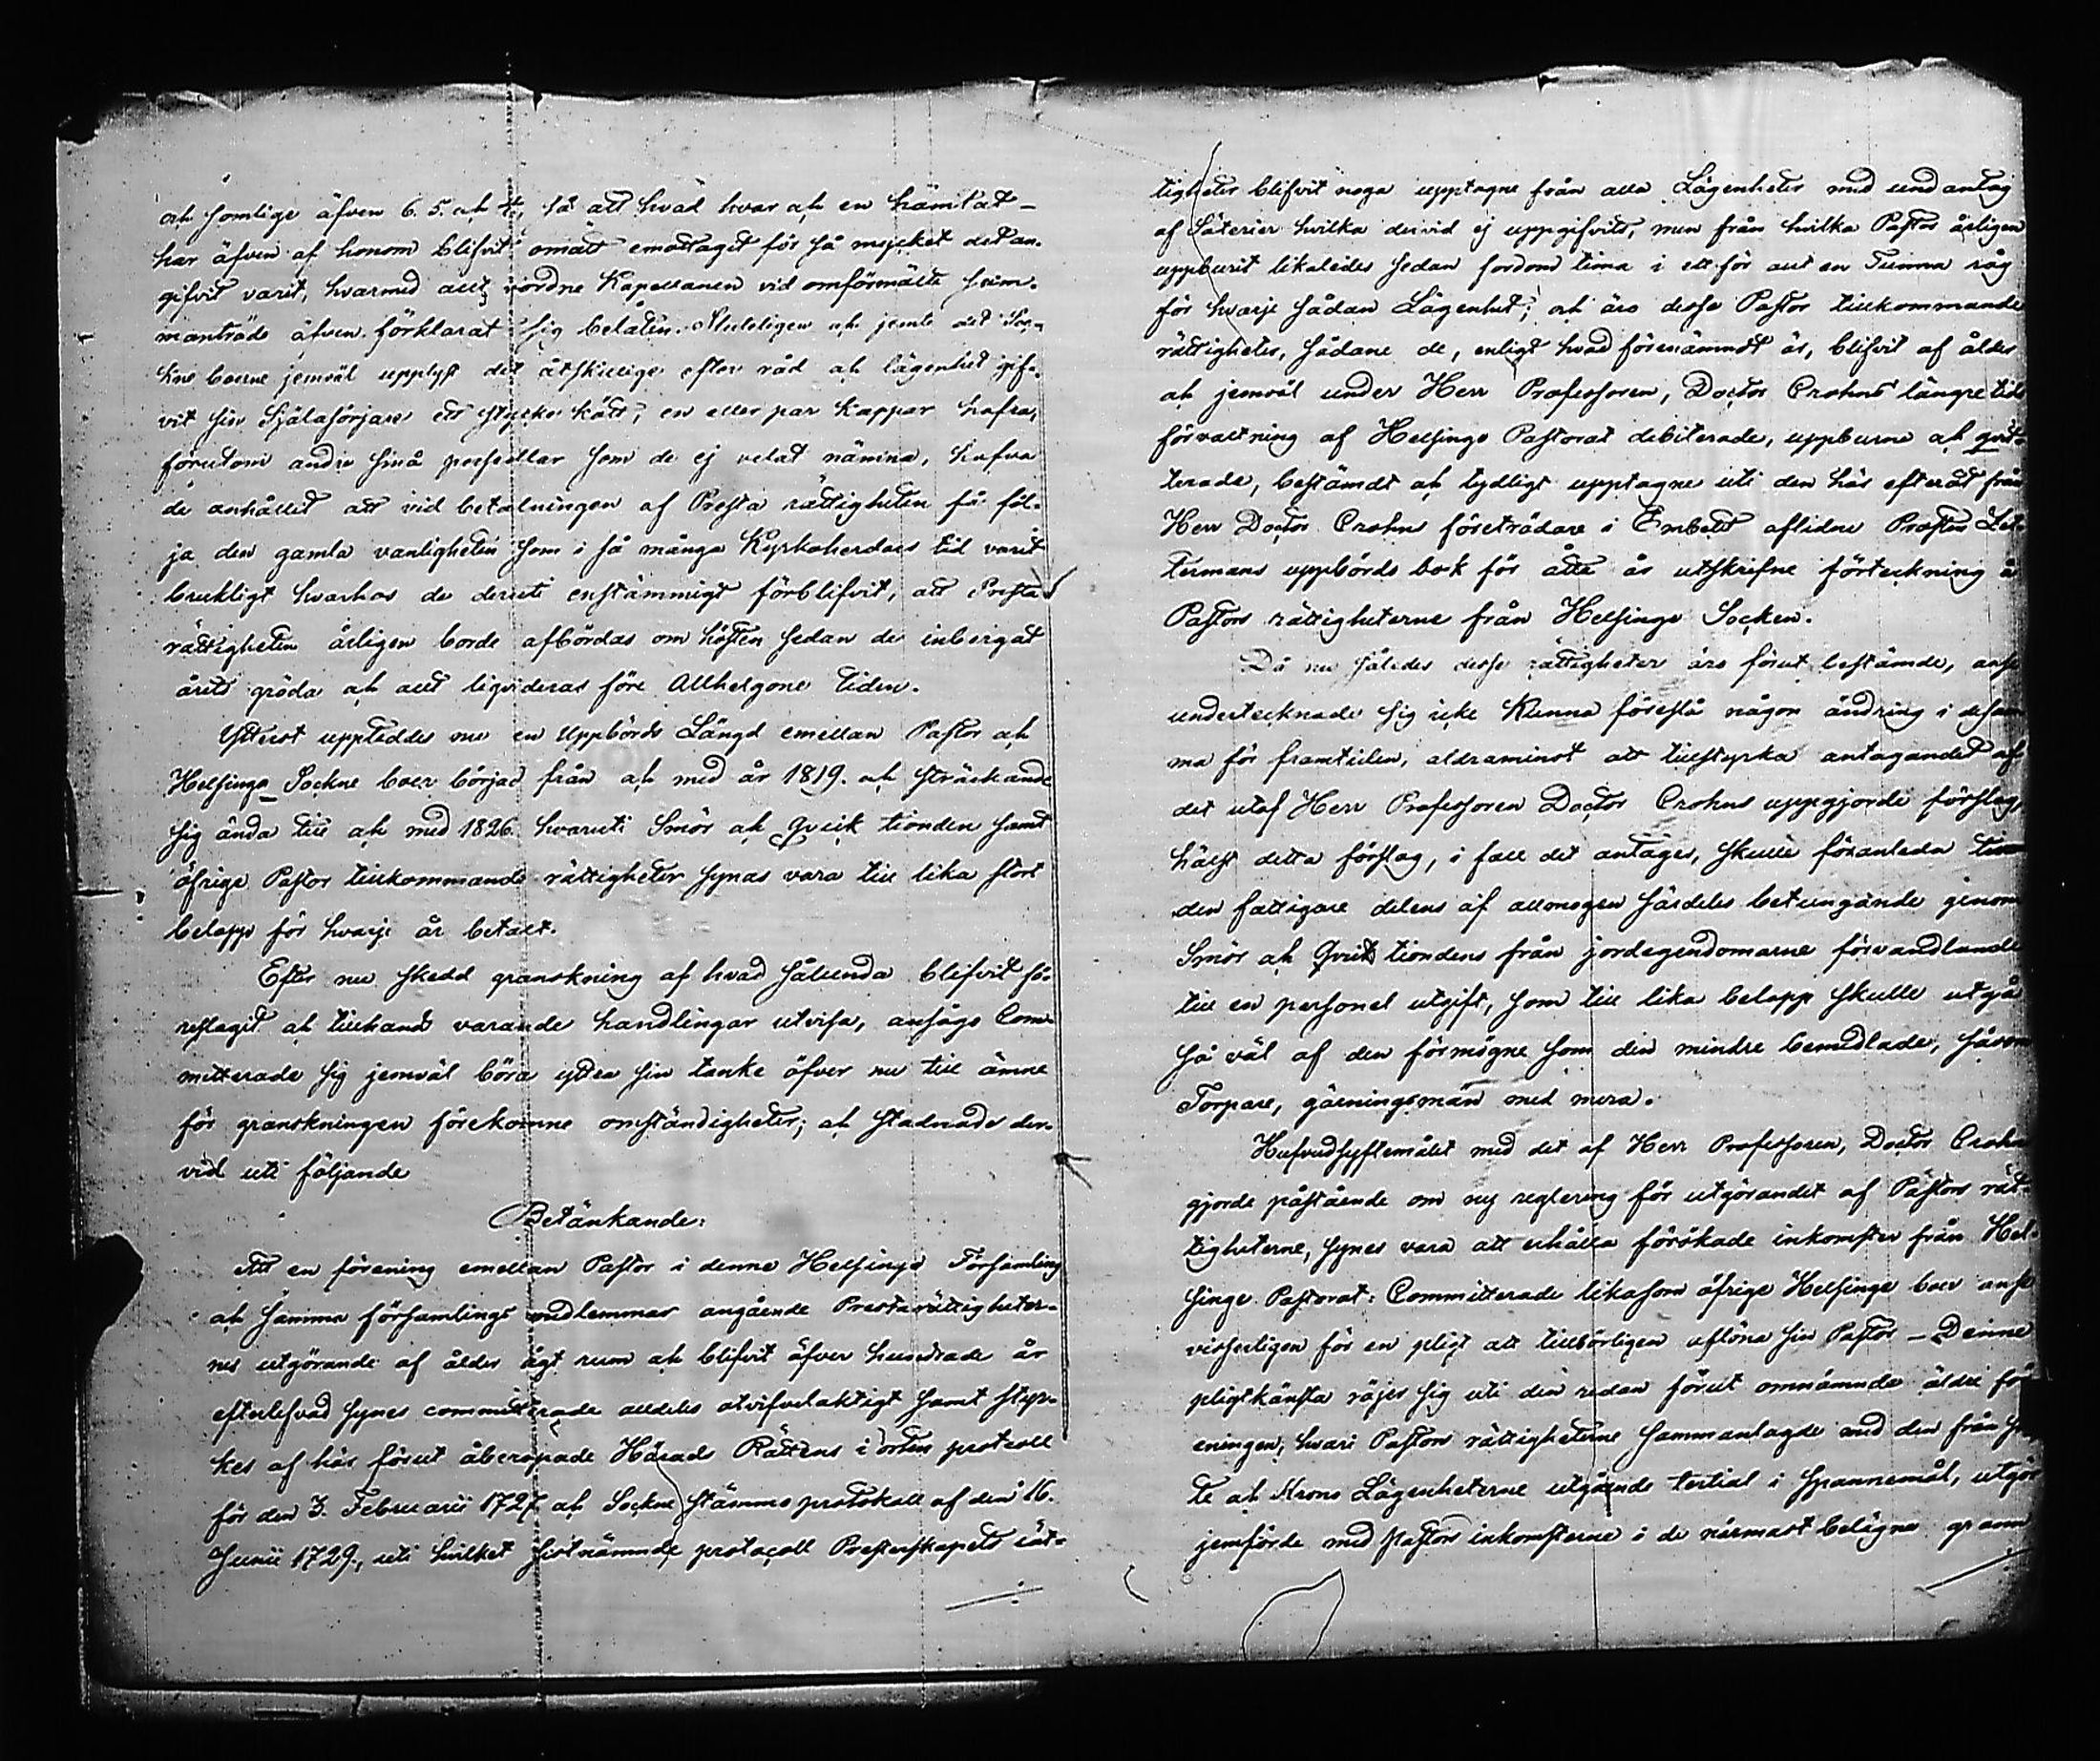 och somlige äfven 6. 5. och 4., så att hvad hvar och en hämtat –
har äfven af honom blifvit omätt emottaget för så mycket det an-
gifvit varit, hvarmed allt vordne Kapellanen vid omförmälte sam-
manträde äfven förklarat sig belåten. Sluteligen och jemte det Soc-
kne boerne jemväl upplyst det åtskillige efter råd och lägenhet gif-
vit sin Själasörjare ett stycke kött, en eller par kappar hafra,
förutom andre små persedlar som de ej velat nämna, hafva
de anhållit att vid betalningen af Presta rättigheten få föl-
ja den gamla vanligheten som i så många Kyrkoherdars tid varit
brukligt hvarhos de deruti enstämmigt förblifvit, att Presta
rättigheten årligen borde afbördas om hösten sedan de inbergat
årets gröda och allt liqvideras före Allhelgone tiden.
Ytterst uppteddes nu en Uppbörds Längd emellan Pastor och
Helsinge Sockne boer börjad från och med år 1819. och sträckande
sig ända till och med 1826. hvaruti Smör och Qvick tionden samt
öfrige Pastor tillkommande rättigheter synas vara till lika stort
belopp för hvarje år betalt.
Efter nu skedd granskning af hvad sålunda blifvit fö-
reslagit och tillhands varande handlingar utvisa, ansågo Com-
mitterade sig jemväl böra yttra sin tanke öfver nu till ämne
för granskningen förekomne omständigheter; och stadnade der-
vid uti följande
Betänkande:
Att en förening emellan Pastor i denne Helsinge Församling
och samma församlings medlemmar angående Prestarättigheter-
nes utgörande af ålder ägt rum och blifvit öfver hundrade år
efterlefvad synes committerade alldeles otvifvelaktigt samt styr-
kes af här förut åberopade Härads Rättens i orten protcoll
för den 3. Februarii 1727 och Sockne stämmo protokoll af den 16.
Junii 1729., uti hvilket sistnämnde protocoll Presterskapets rät-
tigheter blifvit noga upptagne från alla Lägenheter med undantag
af Säterier hvilka dervid ej uppgifvits, men från hvilka Pastor årligen
uppburit likaledes sedan fordom tima i ett för allt en Tunna råg
för hvarje sådan Lägenhet; och äro desse Pastor tillkommande
rättigheter, sådane de, enligt hvad förenämndt är, blifvit af ålder
och jemväl under Herr Professoren, Doctor Crohns längre tids
förvaltning af Helsinge Pastorat debiterade, uppburne och qvit-
terade, bestämdt och tydligt upptagne uti den här efteråt från
Herr Doctor Crohns företrädare i Embetet aflidne Prosten Let-
termans uppbörds bok för åtta år utskrifne förteckning å
Pastors rättigheterne från Helsinge Socken.
Då nu således desse rättigheter äro förut bestämde, anse
undertecknade sig icke Kunna föreslå någon ändring i desam-
ma för framtiden, aldraminst att tillstyrka antagandet af
det utaf Herr Professoren Doctor Crohns uppgjorde förslag,
hälst detta förslag, i fall det antages, skulle föranleda till
den fattigare delens af allmogen särdeles betungande genom
Smör och Qvick tiondens från jordegendomarne förvandlande
till en personel utgift, som till lika belopp skulle utgå
så väl af den förmögne som den mindre bemedlade, såsom
Torpare, gärningsmän med mera.
Hufvudsyftemålet med det af Herr Professoren, Doctor Crohn
gjorde påstående om ny reglering för utgörandet af Pastors rät-
tigheterne, synes vara att erhålla förökade inkomster från Hel-
singe Pastorat: Committerade likasom öfrige Helsinge boer anse
visserligen för en pligt att tillbörligen aflöna sin Pastor – Denne
pligtkänsla röjer sig uti den redan förut omnämnde äldre för-
eningen, hvari Pastors rättigheterne sammanlagde med den från
te och Krono Lägenheterne utgående tertial i spannemål, utgör
jemförde med Pastors inkomsterne i de närmast belägne grann